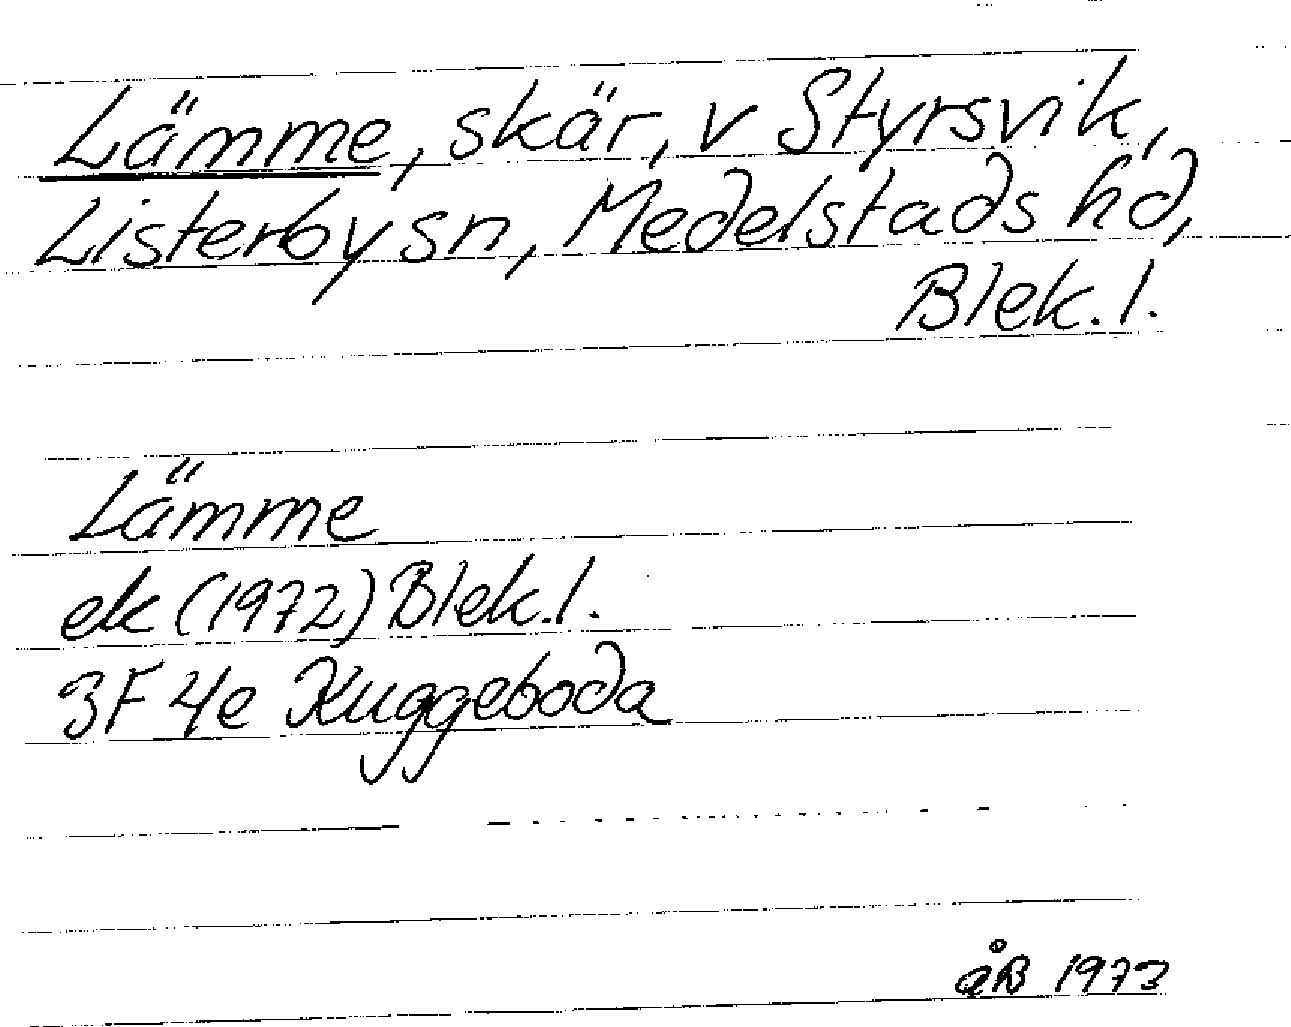 Lämme, skär, v Styrsvik,
Listerby sn, Medelstads hd,
Blek. l.
Lämme
ek (1972) Blek. l.
3F 4e Kuggeboda
åB 1973